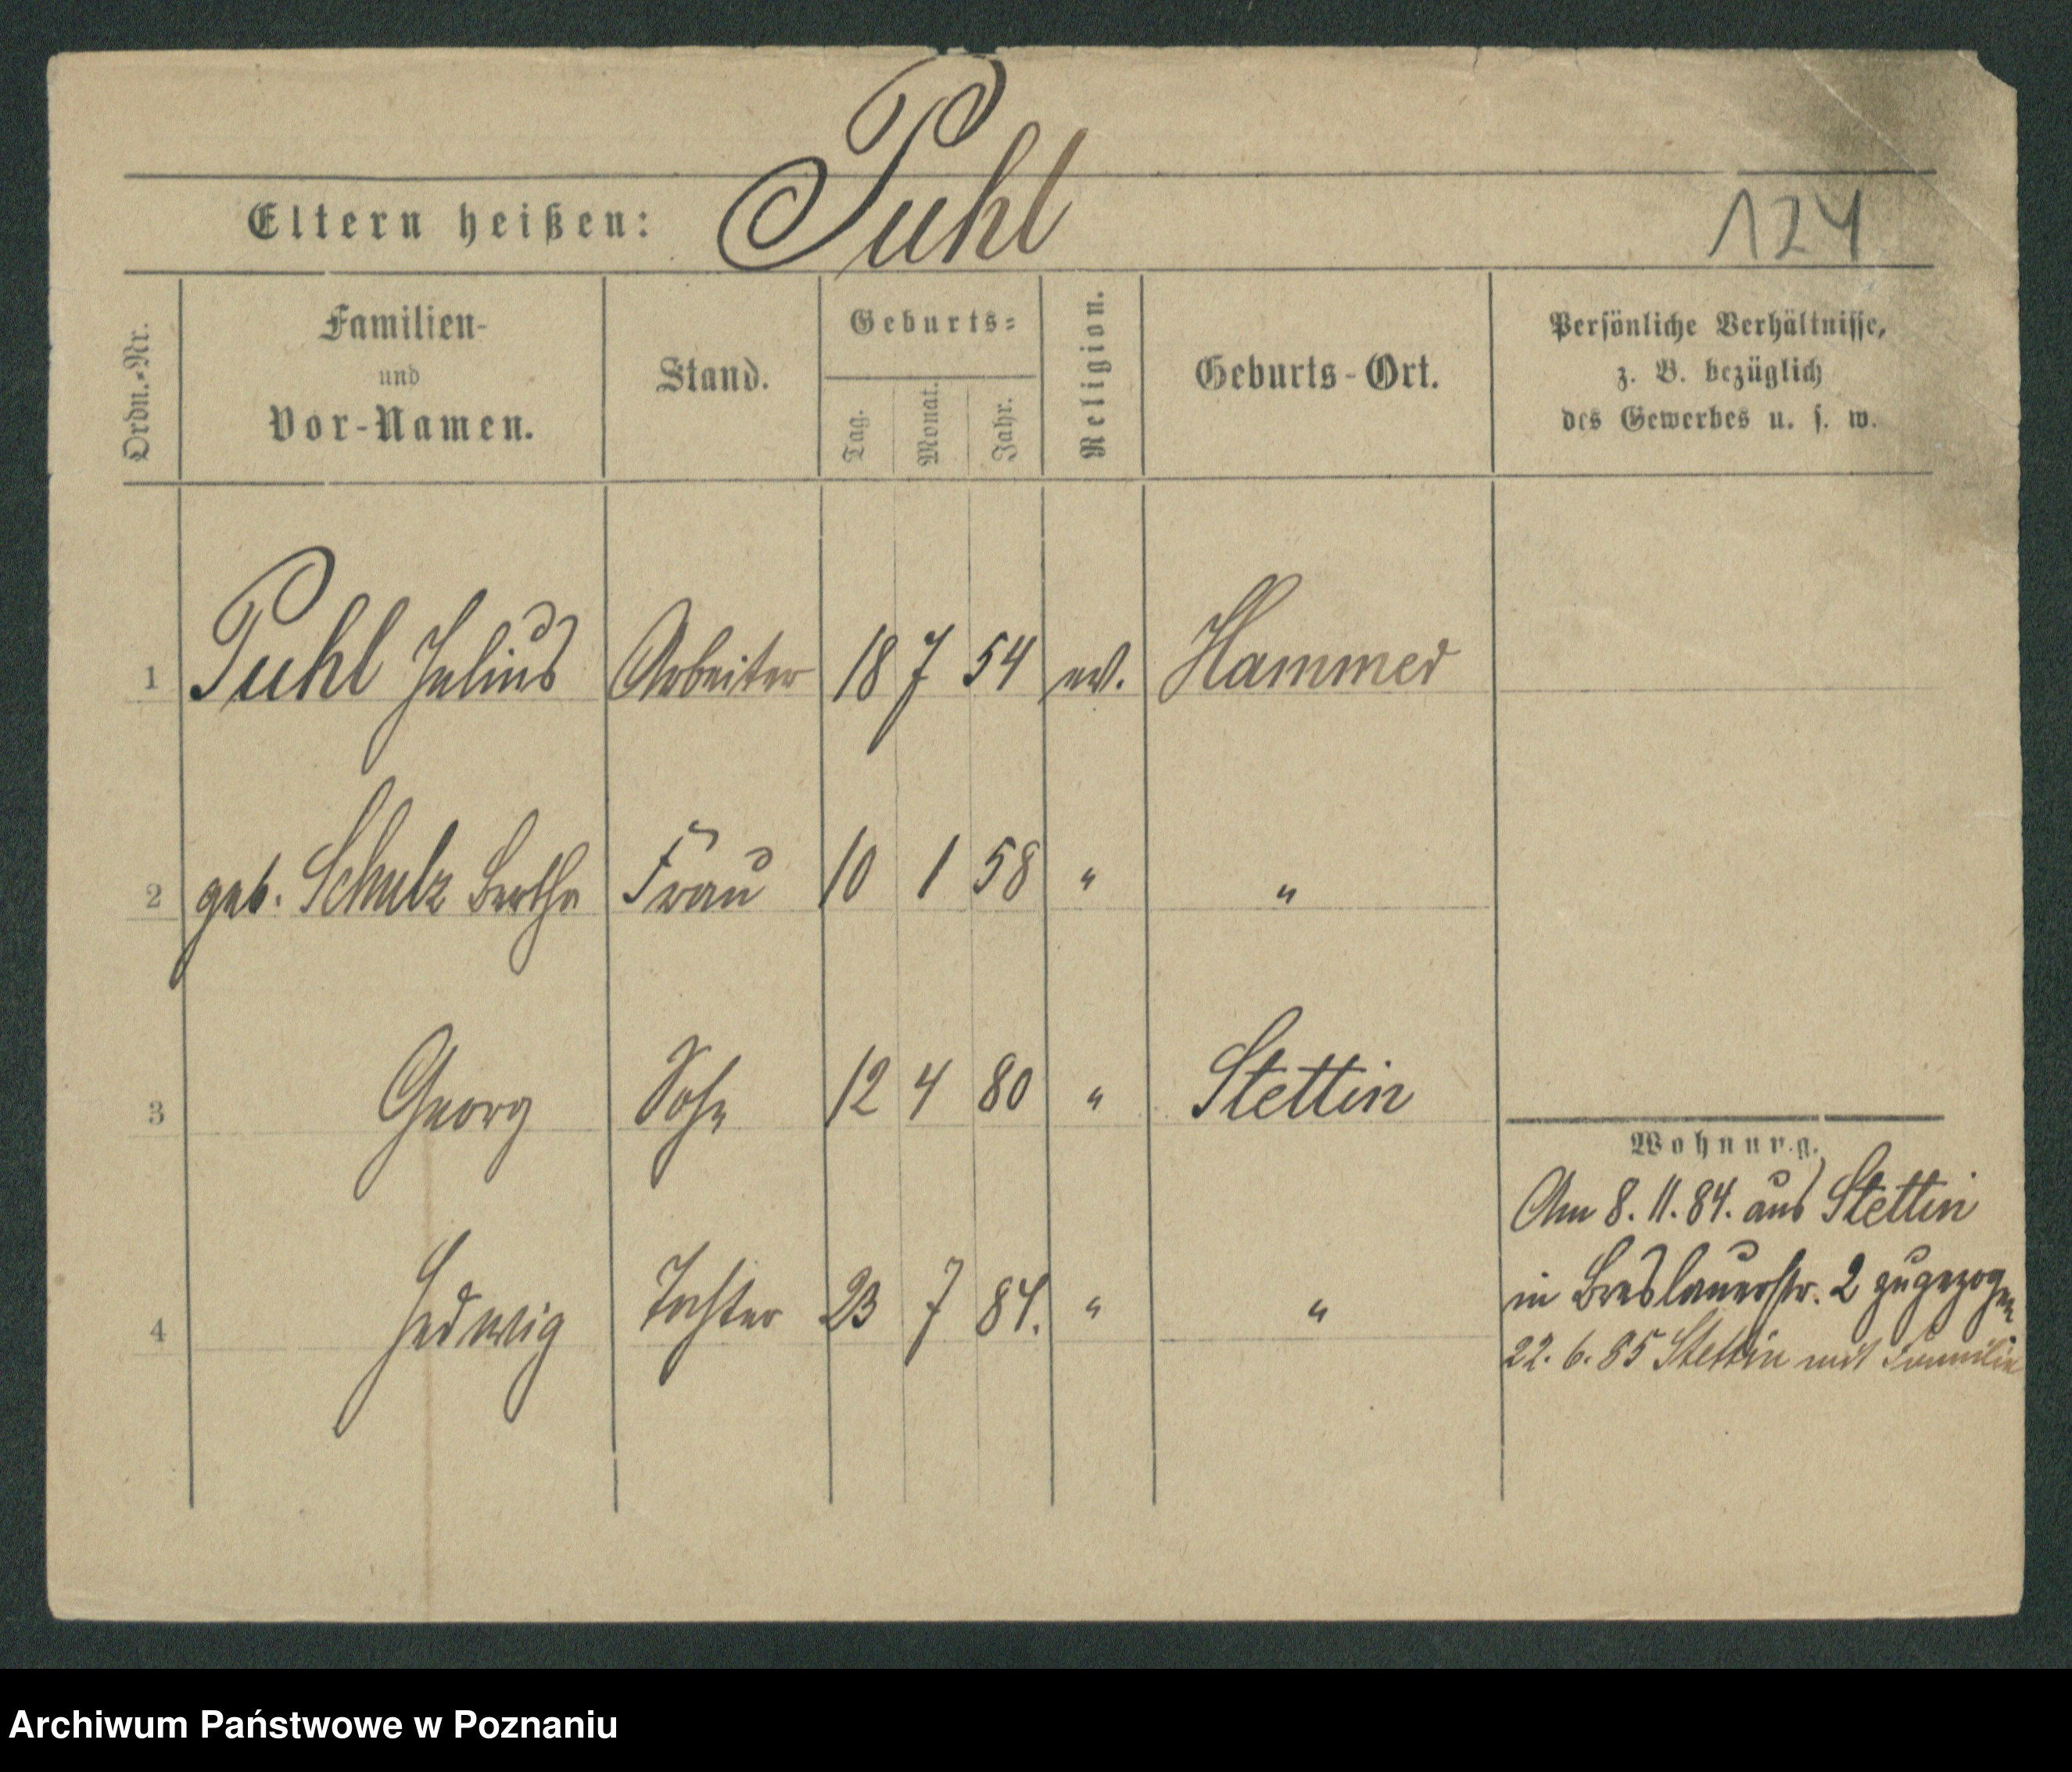 Puhl
Eltern heißen:
124
Ordn.-Nr.
Familien-
und
Vor-Namen.
Stand.
Geburts-
Tag.
Monat.
Jahr.
Religion.
Geburts-Ort.
Persönliche Verhältnisse,
z. B. bezüglich
des Gewerbes u. s. w.
1 Puhl Julius Arbeiter 18 7 54 ev. Hammer
2 geb. Schulz Bertha Frau 10 1 58 " "
3 Georg Sohn 12 4 80 " Stettin
4 Hedwig Tochter 23 7 84. " "
Wohnung.
Am 8. 11. 84. aus Stettin
in Breslauerstr. 2 zugezogen
22. 6. 85 Stettin mit Familie
Archiwum Państwowe w Poznaniu